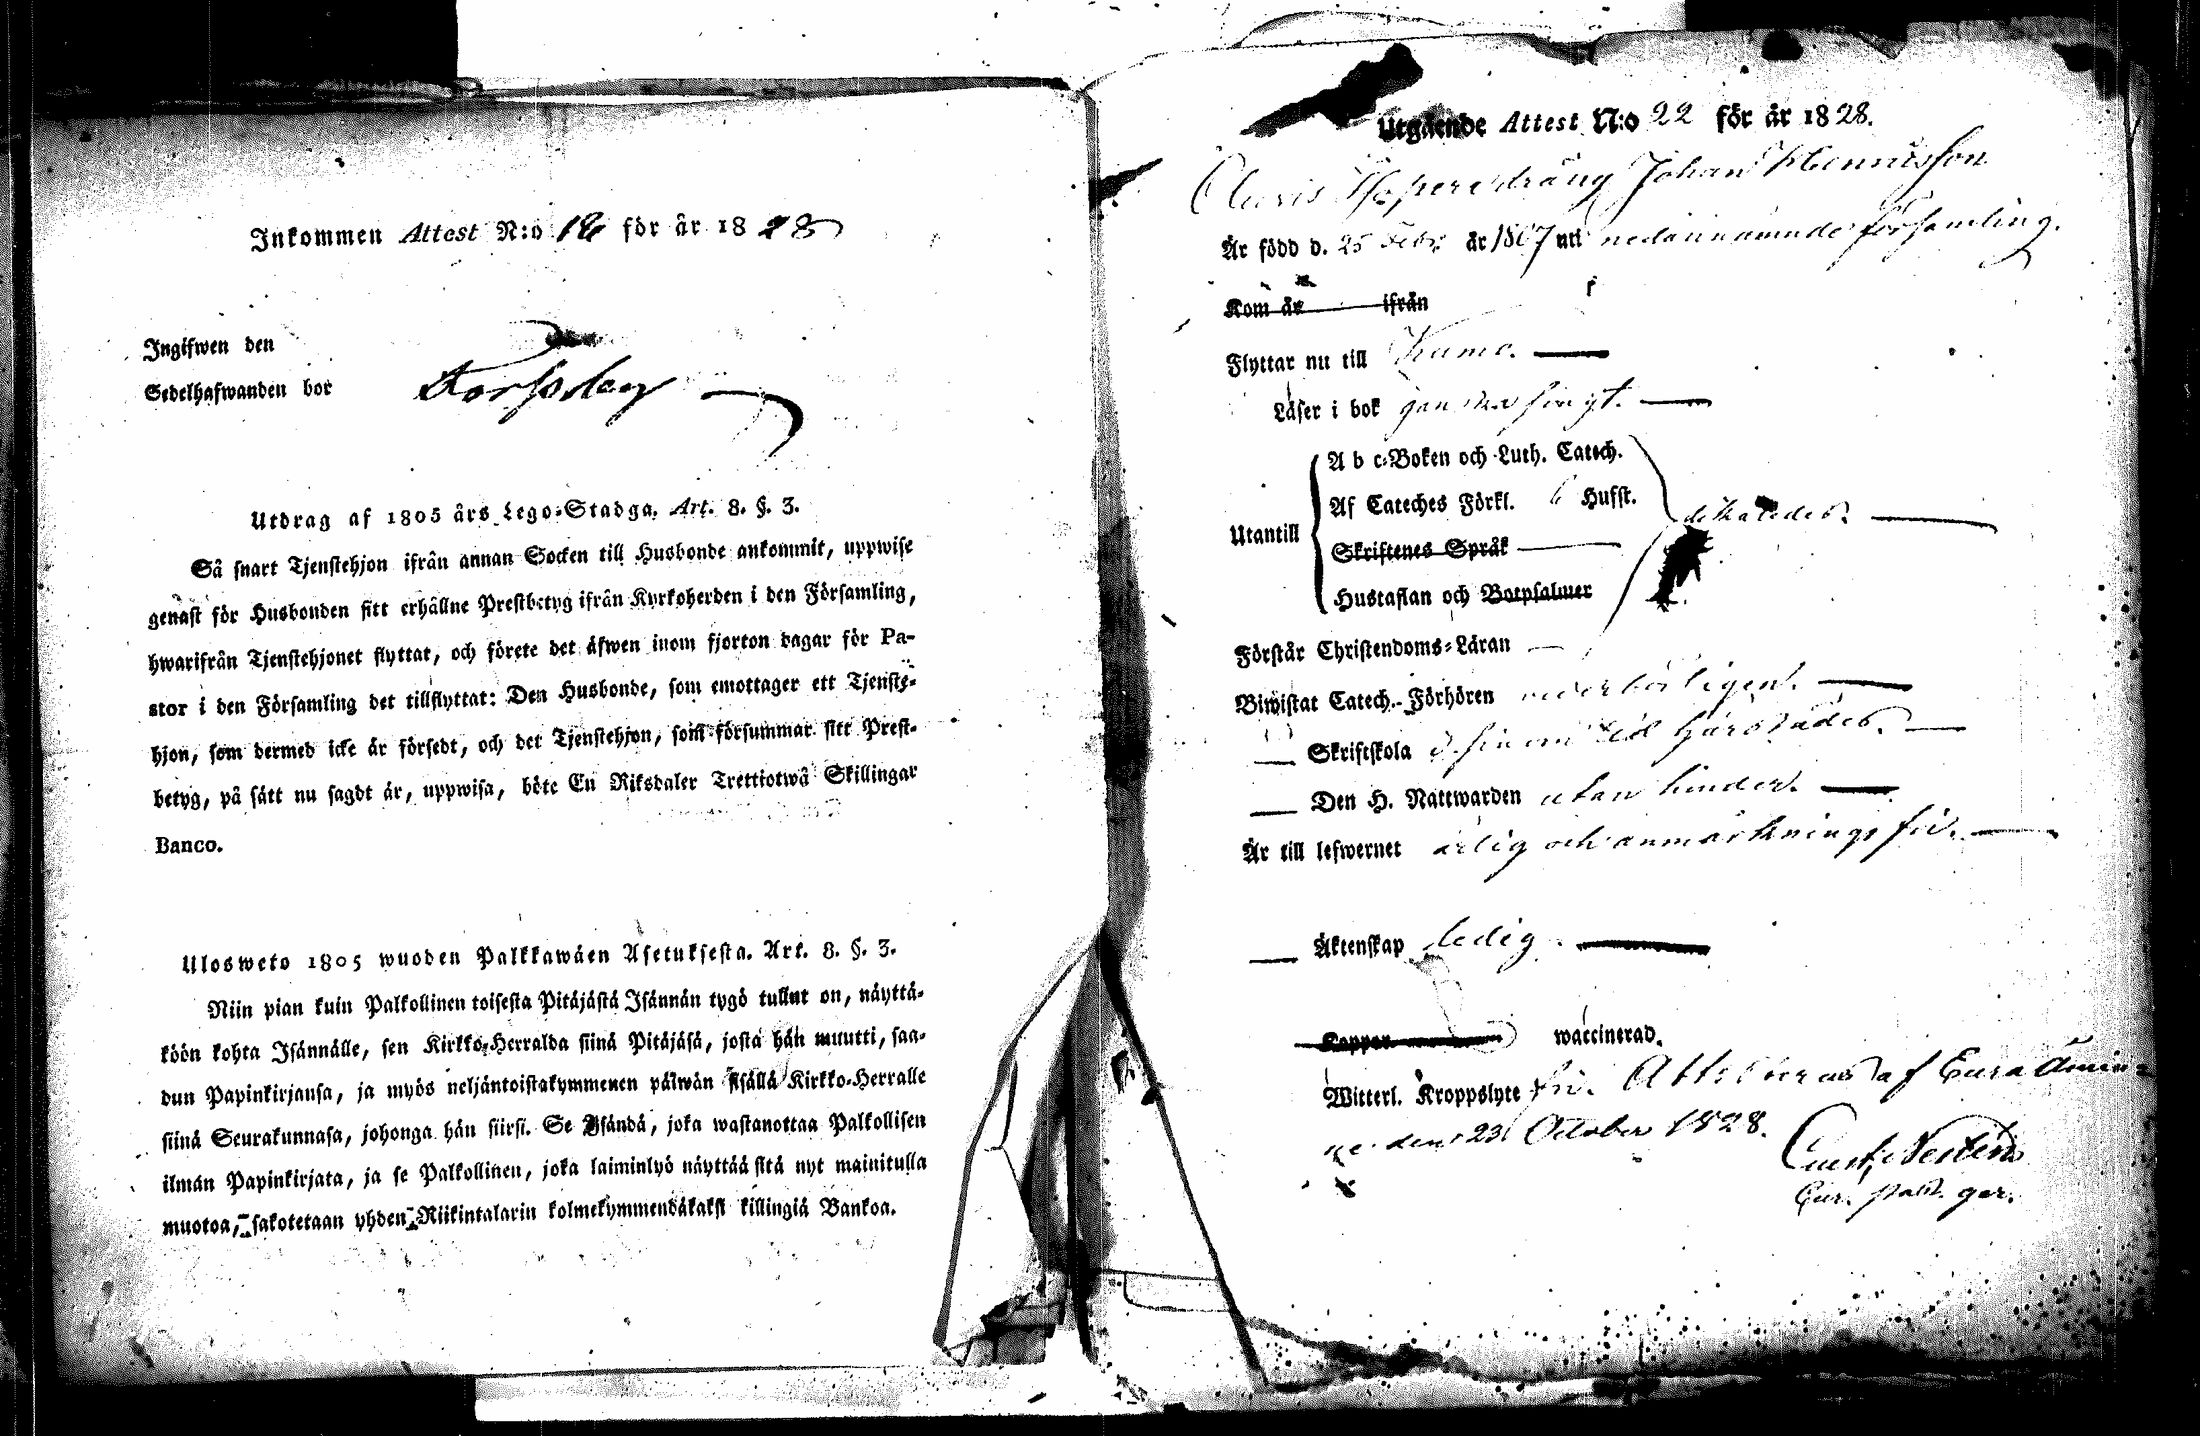 Inkommen Attest N:o 18 för år 1828
Ingifwen den
Sedelhafwanden bor Forssby
Utdrag af 1805 års Lego-Stadga. Art. 8. §. 3.
Så snart Tjenstehjon ifrån annan Socken till Husbonde ankommit, uppwise
genast för Husbonden sitt erhållne Prestbetyg ifrån Kyrkoherden i den Församling,
hwarifrån Tjenstehjonet flyttat, och förete det äfwen inom fjorton dagar för Pa-
stor i den Församling det tillflyttat: Den Husbonde, som emottager ett Tjenste-
hjon, som dermed icke är försedt, och det Tjenstehjon, som försummar sitt Prest-
betyg, på sätt nu sagdt är, uppwisa, böte En Riksdaler Trettiotwå Skillingar
Banco.
Ulosweto 1805 wuoden Palkkawäen Asetuksesta. Art. 8. §. 3.
Niin pian kuin Palkollinen toisesta Pitäjästä Isännän tygö tullut on, näyttä-
köön kohta Isännälle, sen Kirkko-Herralda siinä Pitäjäsä, josta hän muutti, saa-
dun Papinkirjansa, ja myös neljäntoistakymmenen päiwän sisällä Kirkko-Herralle
siinä Seurakunnasa, johonga hän siirsi. Se Isändä, joka wastanottaa Palkollisen
ilman Papinkirjata, ja se Palkollinen, joka laiminlyö näyttää sitä nyt mainitulla
muotoa, sakotetaan yhden Riikintalarin kolmekymmendäkaksi killingiä Bankoa.
Utgående Attest N:o 22 för år 1828.
Johan Henricsson
Är född d. 25 Febr. år 1807 uti nedannämnde församling.
Kom år ifrån
Flyttar nu till Kumo.
Läser i bok ganska svagt.
A b c-Boken och Luth. Catech.
Af Cateches Förkl. 6 Hufst.
Utantill
Skriftenes Språk
Hustaflan och Botpsalmer
likaledes.
Förstår Christendoms-Läran
Biwistat Catech.-Förhören wederbörligen.
Skriftskola i sinom tid härstädes.
Den H. Nattwarden utan hinder.
Är till lefwernet ärlig och anmärkningsfri.
Äktenskap ledig.
Koppor waccinerad.
Witterl. Kroppslyte fri. Attesteras af Eura Åmin-
ne den 23 October 1828.
Gust. Nestens
Eur. past. ger.